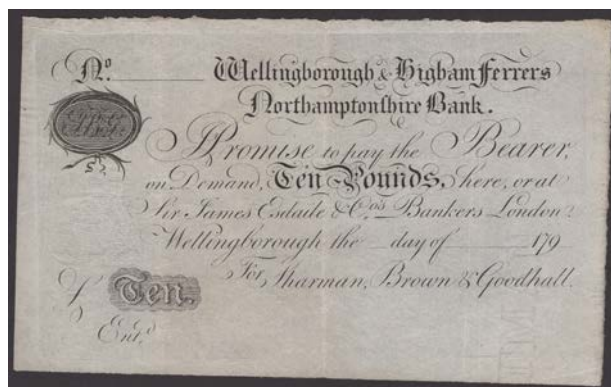 No.
Wellingborough & Higham Ferrers
Northamptonshire Bank.
I Promise to pay the Bearer,
on Demand, Ten Pounds, here, or at
Sir James Esdaile & Cos. Bankers London
Wellingborough the day of 179
For Sharman, Brown & Goodhall.
£ Ten.
Entd.